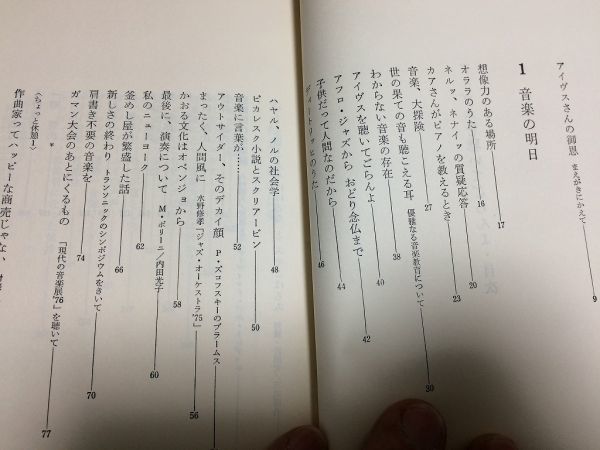 アイヴスさんの御恩 まえがきにかえて 9
1 音楽の明日
想像力のある場所 17
オララのうた 16
ネルッ、ネナイッの質疑応答 20
カアさんがピアノを教えるとき 23
音楽、大探険 27
世の果ての音も聴こえる耳 優雅なる音楽教育について
わからない音楽の存在 38
アイヴスを聴いてごらんよ 40
アフロ・ジャズから おどり念仏まで 42
子供だって人間なのだから 44
ディートリッヒのうた 46
ハヤル、ノルの社会学 48
ピカレスク小説とスクリアービン 50
音楽に言葉が…… 52
アウトサイダー、そのデカイ顔 P・ズコフスキーのブラームス
まったく、人間風に 水野修孝「ジャズ・オーケストラ'75」 56
かおる文化はオベンジョから 58
最後に、演奏について M・ポリーニ/内田光子 60
私のニューヨーク 62
釜めし屋が繁盛した話 66
新しさの終わり トランソニックのシンポジウムをきいて
肩書き不要の音楽を 70
ガマン大会のあとにくるもの 「現代の音楽展'76」を聴いて 74
*
〈ちょっと休憩1〉
作曲家ってハッピーな商売じゃない 77